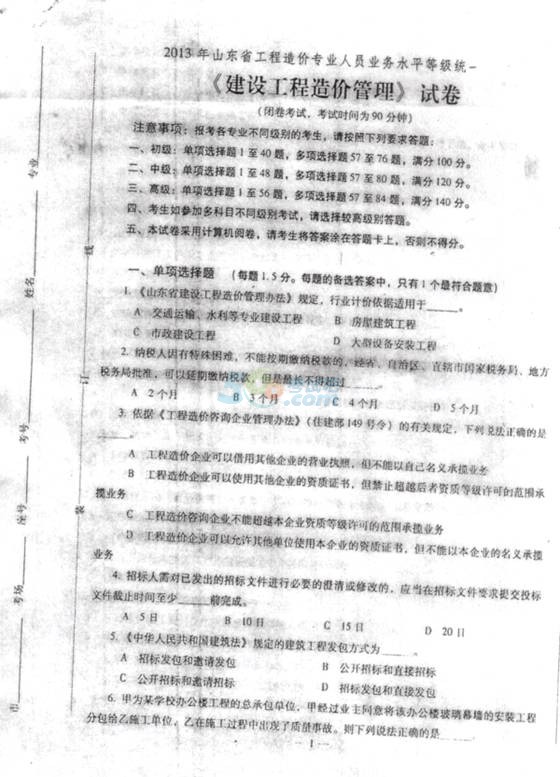 2013 年山东省工程造价专业人员业务水平等级统一
《建设工程造价管理》试卷
(闭卷考试，考试时间为 90 分钟)
注意事项：报考各专业不同级别的考生，请按照下列要求答题：
一、初级：单项选择题 1 至 40 题，多项选择题 57 至 76 题，满分 100 分。
二、中级：单项选择题 1 至 48 题，多项选择题 57 至 80 题，满分 120 分。
三、高级：单项选择题 1 至 56 题，多项选择题 57 至 84 题，满分 140 分。
四、考生如参加多科目不同级别考试，请选择较高级别答题。
五、本试卷采用计算机阅卷，请考生将答案涂在答题卡上，否则不得分。
一、单项选择题 (每题 1.5 分。每题的备选答案中，只有 1 个最符合题意)
1.《山东省建设工程造价管理办法》规定，行业计价依据适用于______。
A 交通运输、水利等专业建设工程 B 房屋建筑工程
C 市政建设工程 D 大型设备安装工程
2. 纳税人因有特殊困难，不能按期缴纳税款的，经省、自治区、直辖市国家税务局、地方
税务局批准，可以延期缴纳税款，但是最长不得超过______。
A 2 个月 B 3 个月 C 4 个月 D 5 个月
3. 依据《工程造价咨询企业管理办法》（住建部 149 号令）的有关规定，下列说法正确的是
______。
A 工程造价企业可以借用其他企业的营业执照，但不能以自己名义承揽业务
B 工程造价企业可以使用其他企业的资质证书，但禁止超越后者资质等级许可的范围承
揽业务
C 工程造价咨询企业不能超越本企业资质等级许可的范围承揽业务
D 工程造价企业可以允许其他单位使用本企业的资质证书，但不能以本企业的名义承揽
业务
4. 招标人需对已发出的招标文件进行必要的澄清或修改的，应当在招标文件要求提交投标
文件截止时间至少______前完成。
A 5 日 B 10 日 C 15 日 D 20 日
5.《中华人民共和国建筑法》规定的建筑工程发包方式为______。
A 招标发包和邀请发包 B 公开招标和直接招标
C 公开招标和邀请招标 D 招标发包和直接发包
6. 甲为某学校办公楼工程的总承包单位，甲经过业主同意将该办公楼玻璃幕墙的安装工程
分包给乙施工单位，乙在施工过程中出现了质量事故。则下列说法正确的是______
— 1 —
市______ 考场______ 座号______ 考号______ 姓名______ 专业______
装 订 线